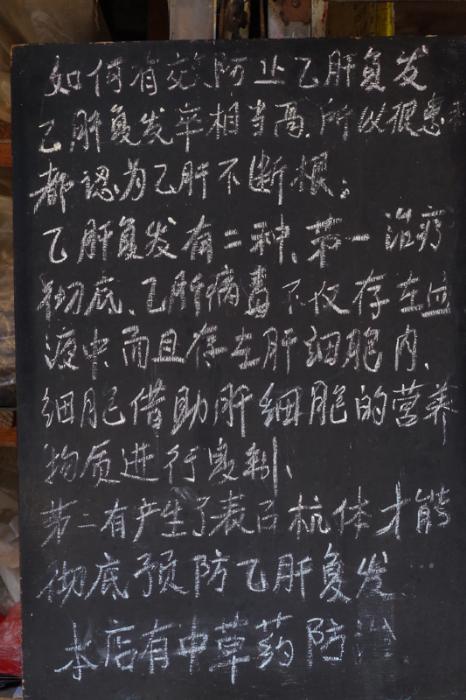 如何有效防止乙肝复发
乙肝复发率相当高,所以很患
都認为乙肝不断根;
乙肝复发有二种、第一治疗
彻底、乙肝病毒不仅存在血
液中,而且存在肝细胞内、
细胞借助肝细胞的营养
物质进行复制、
第二有产生了表面抗体才能
彻底预防乙肝复发
本店有中草药防